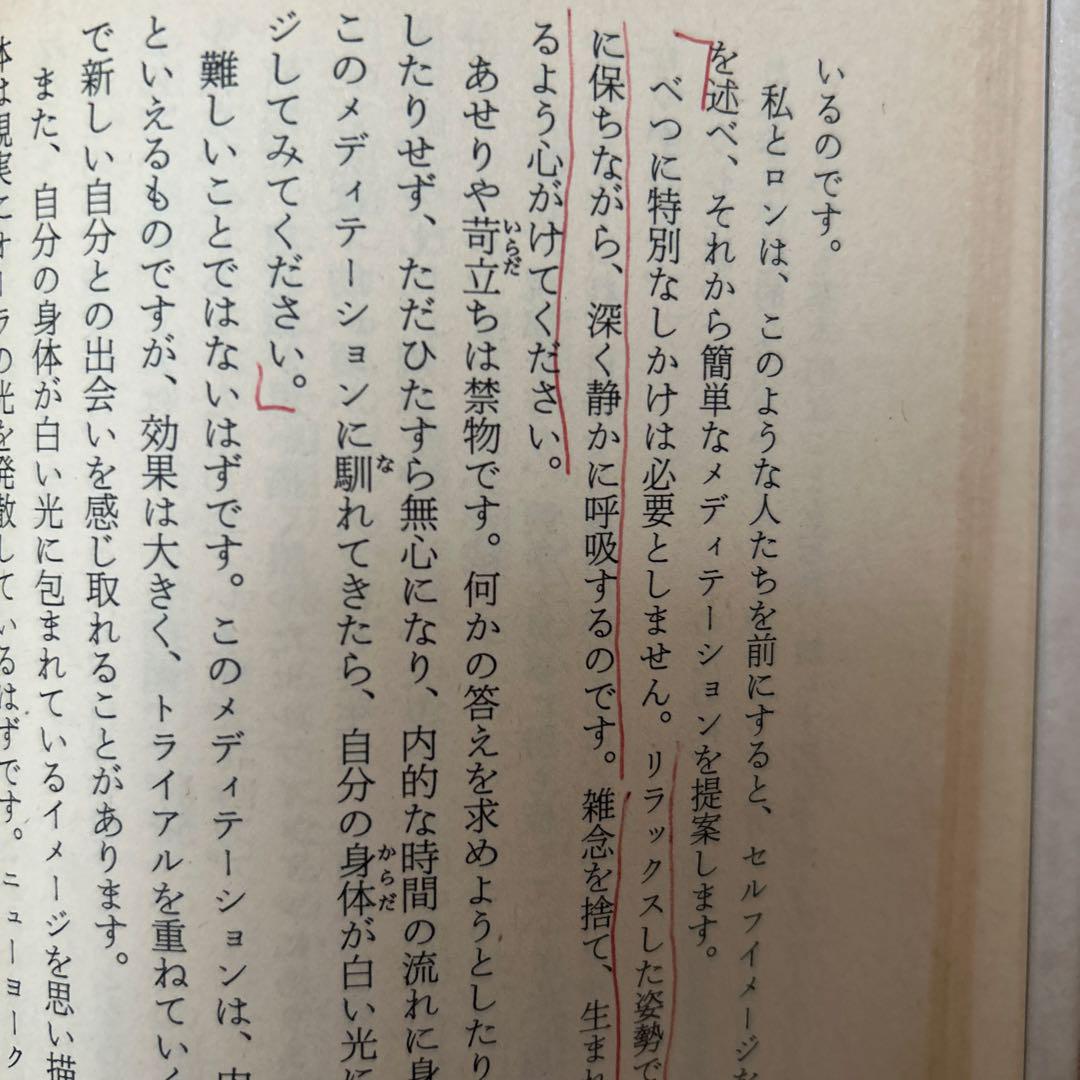 いるのです。
私とロンは、このような人たちを前にすると、セルフイメージ
を述べ、それから簡単なメディテーションを提案します。
べつに特別なしかけは必要としません。リラックスした姿勢で
に保ちながら、深く静かに呼吸するのです。雑念を捨て、生まれ
るよう心がけてください。
あせりや苛立ちは禁物です。何かの答えを求めようとしたり
いらだ
したりせず、ただひたすら無心になり、内的な時間の流れに身
このメディテーションに馴れてきたら、自分の身体が白い光に
な
からだ
ジしてみてください。
難しいことではないはずです。このメディテーションは、内
といえるものですが、効果は大きく、トライアルを重ねていく
で新しい自分との出会いを感じ取れることがあります。
また、自分の身体が白い光に包まれているイメージを思い描
体は現実にオーラの光を発散しているはずです。ニューヨーク